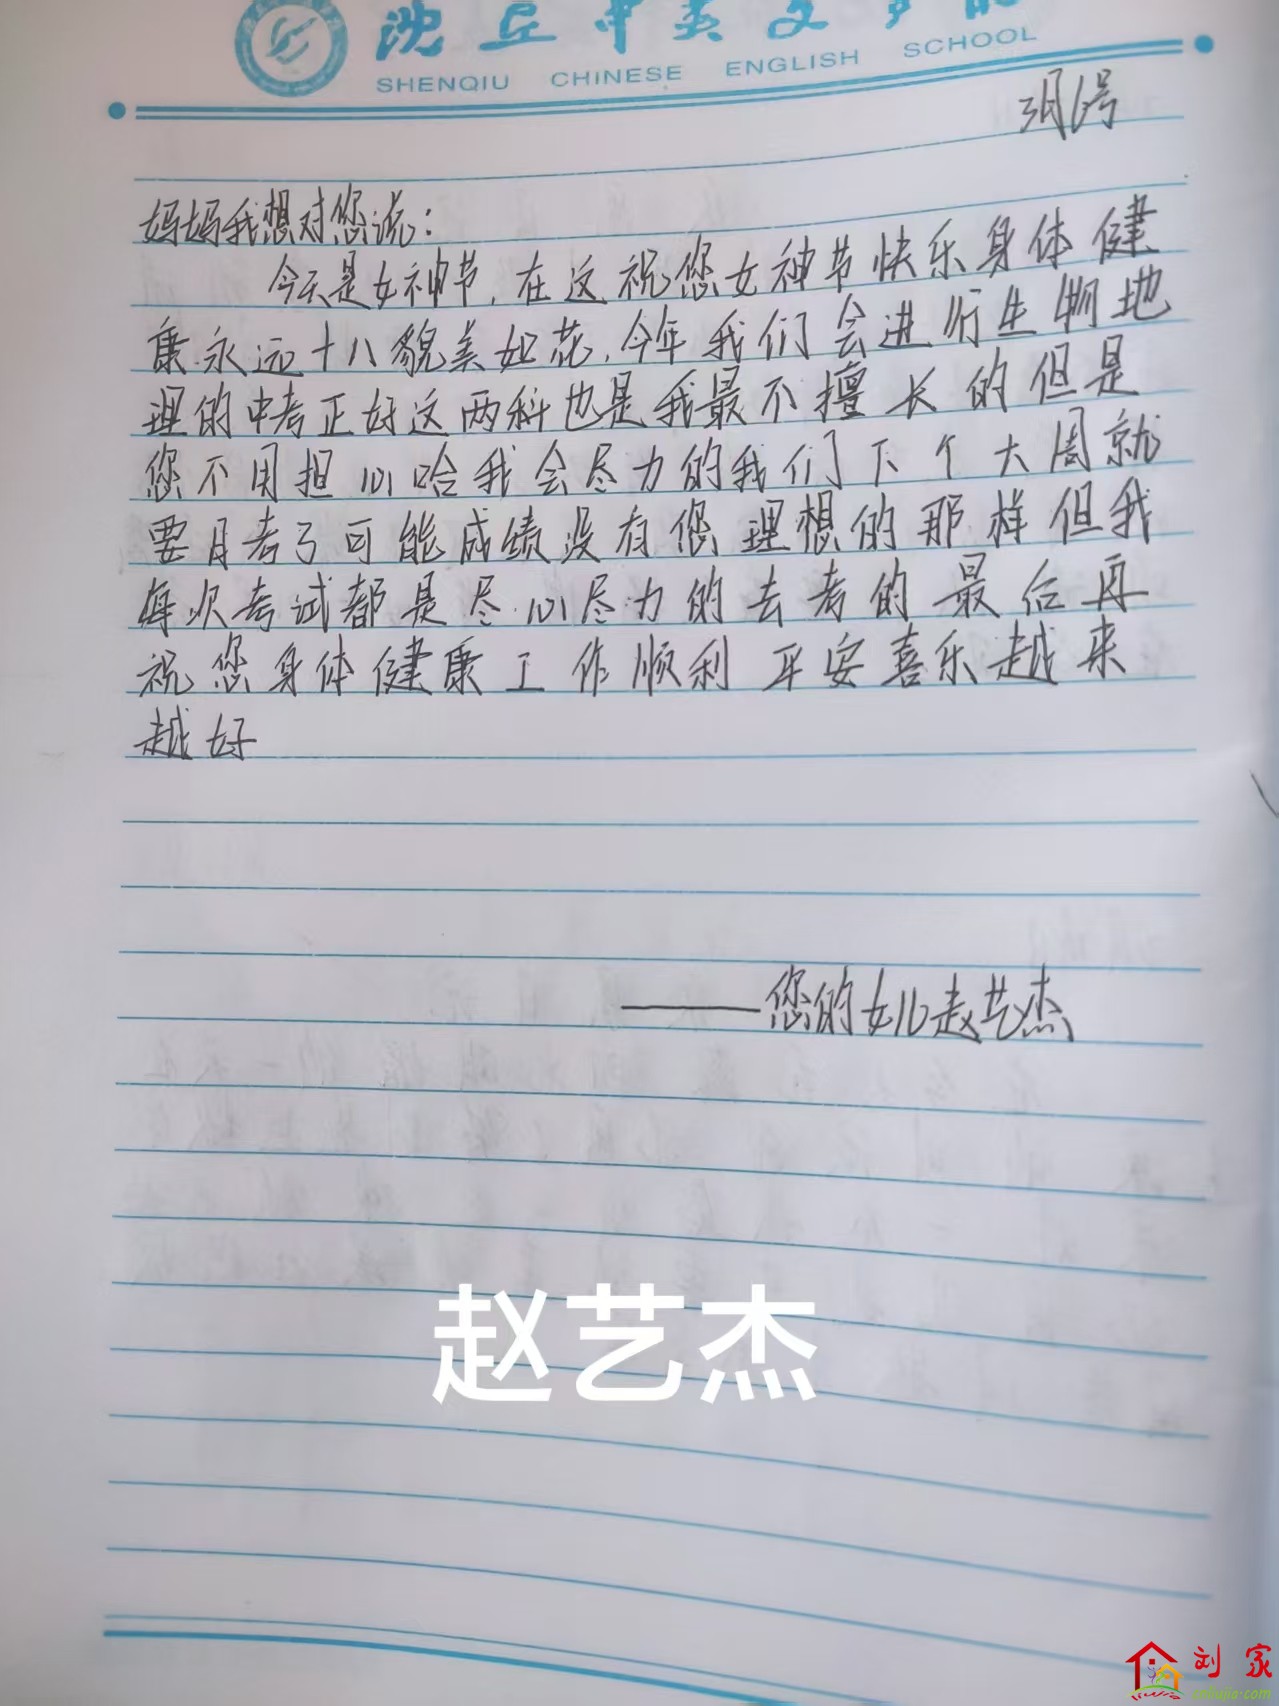 沈丘中英文学校
SHENQIU CHINESE ENGLISH SCHOOL
3月6号
妈妈我想对您说：
今天是女神节，在这祝您女神节快乐身体健
康永远十八貌美如花，今年我们会进行生物地
理的中考正好这两科也是我最不擅长的但是
您不用担心哈我会尽力的我们下个大周就
要月考了可能成绩没有您理想的那样但我
每次考试都是尽心尽力的去考的最后再
祝您身体健康工作顺利平安喜乐越来
越好
——您的女儿赵艺杰
赵艺杰
刘家